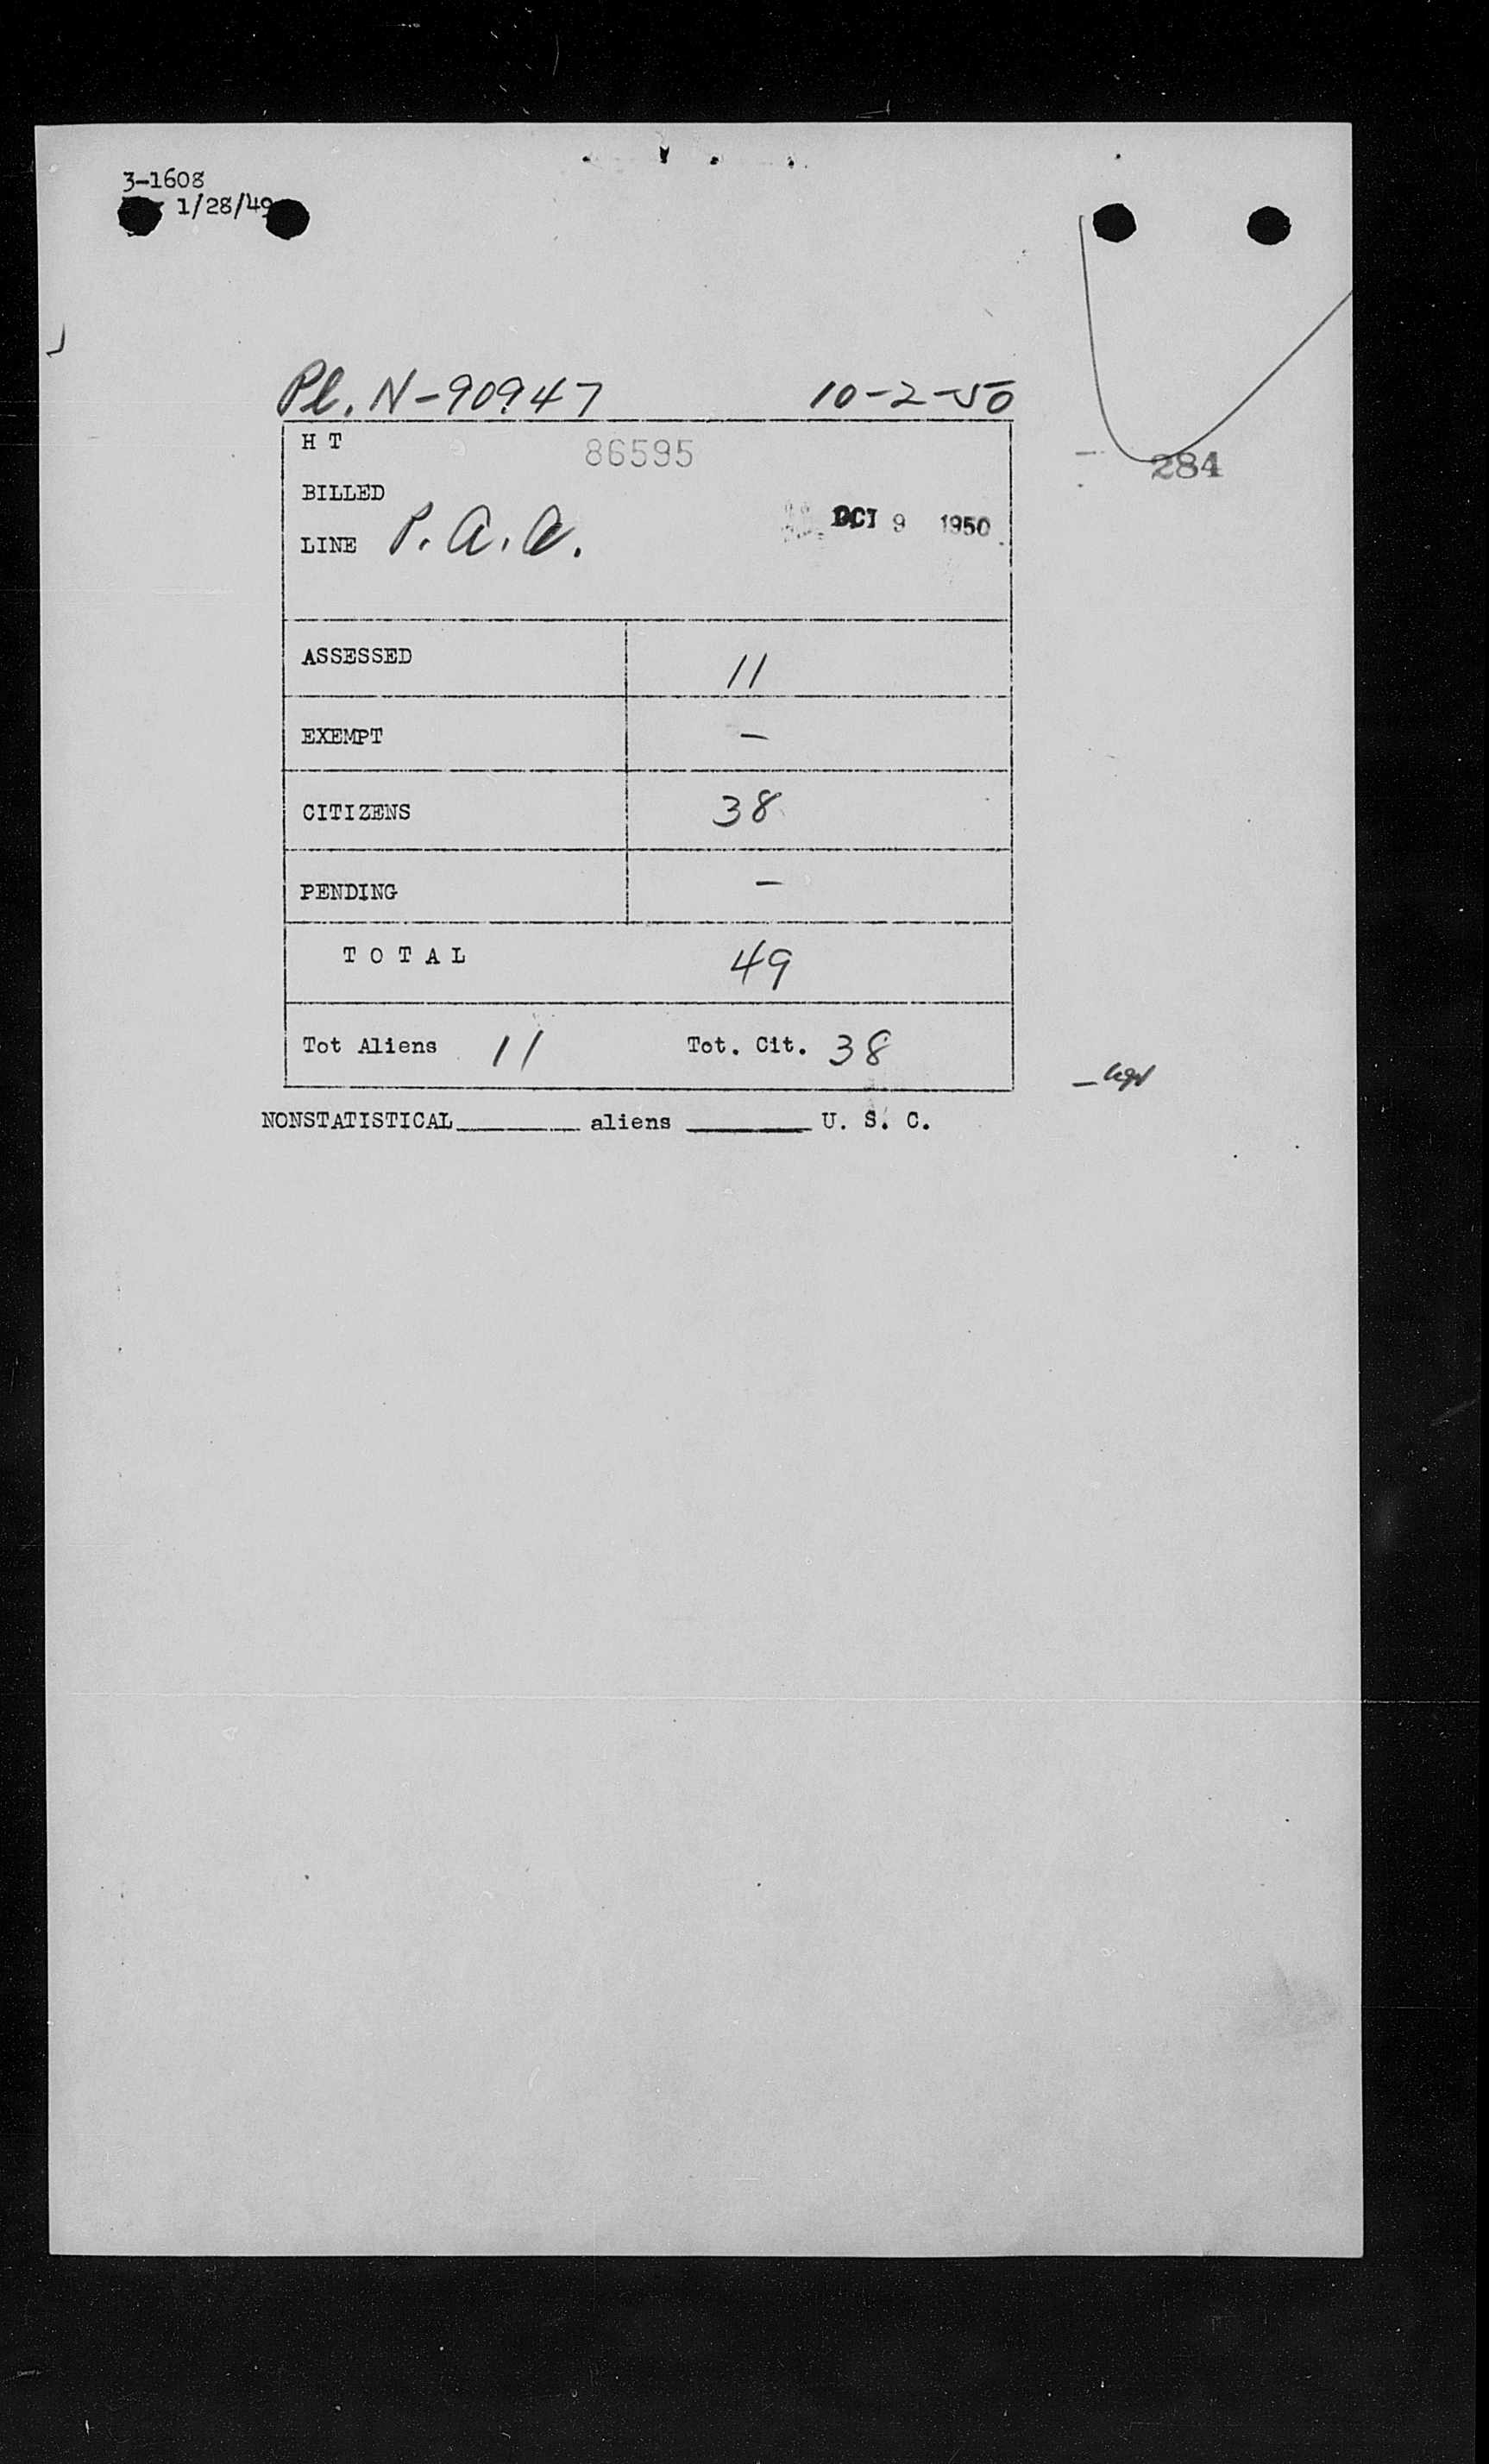 3-1608
1/28/49
Pl. N-90947 10-2-50
H T 86595
284
BILLED
LINE P. A. A. OCT 9 1950
ASSESSED 11
EXEMPT -
CITIZENS 38
PENDING -
T O T A L 49
Tot Aliens 11 Tot. Cit. 38
NONSTATISTICAL________ aliens ________ U. S. C.